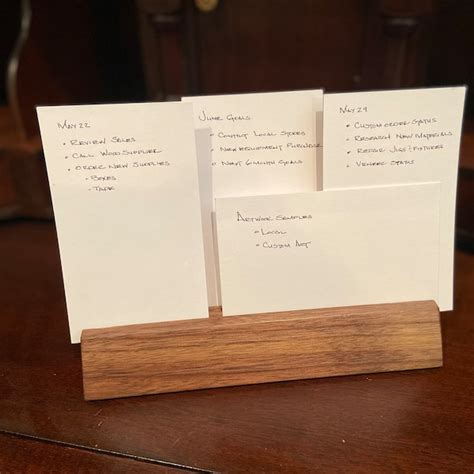 MAY 22
• REVIEW SALES
• CALL WOOD SUPPLIER
• ORDER NEW SUPPLIES
- BOXES
- TAPE
JUNE GOALS
• CONTACT LOCAL STORES
• NEW EQUIPMENT PURCHASE
• NEXT 6 MONTH GOALS
MAY 29
• CUSTOM ORDER STATUS
• RESEARCH NEW MATERIALS
• REPAIR JIGS/FIXTURES
• VENEER STATUS
ARTWORK SAMPLES
• LOCAL
• CUSTOM ART